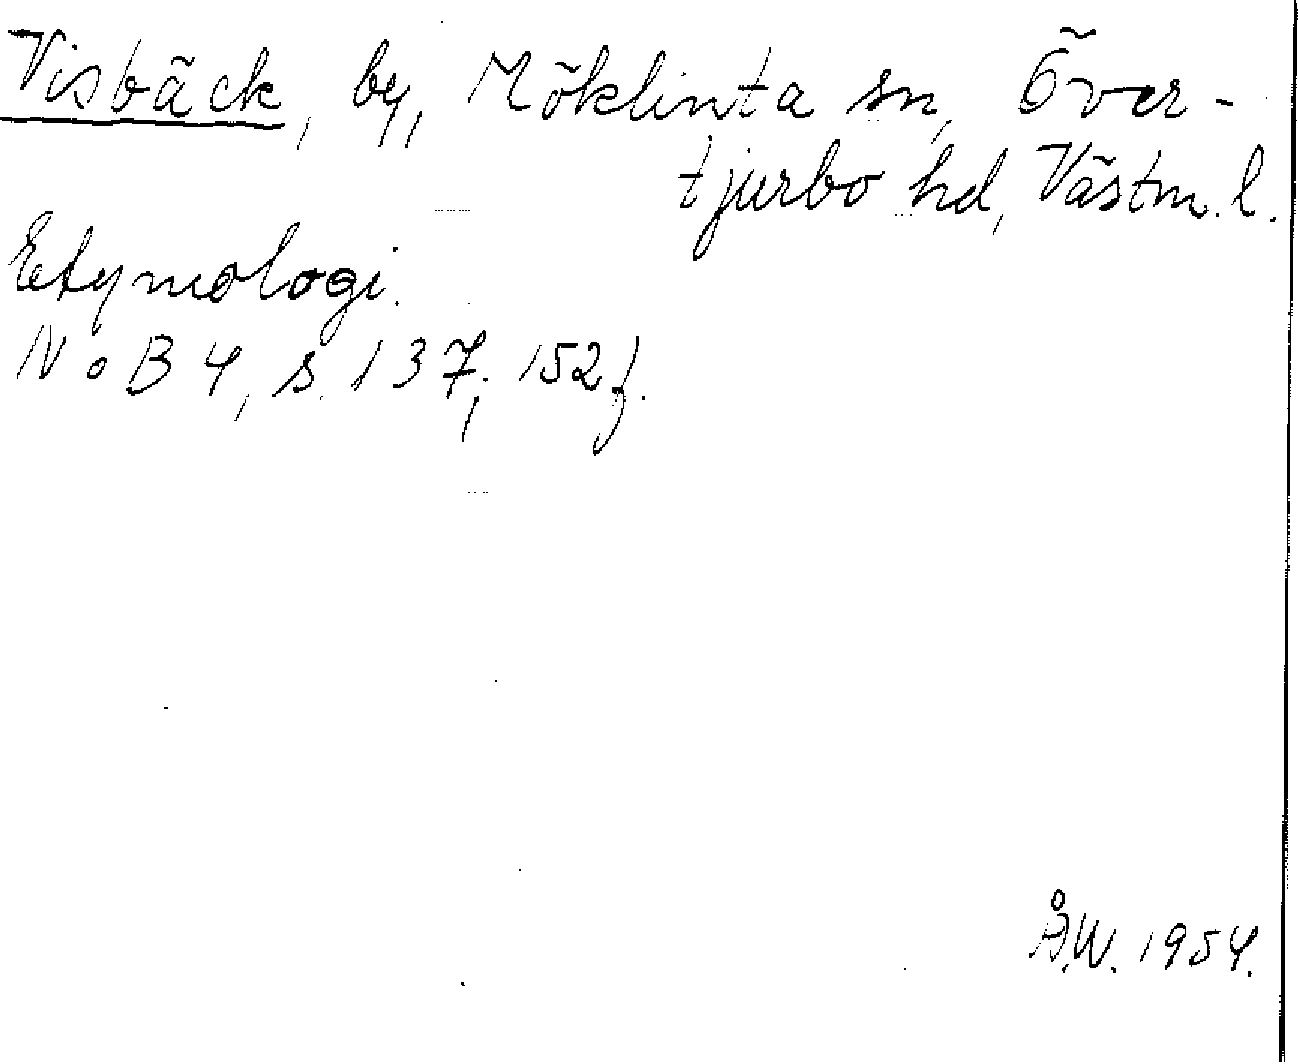 Visbäck, by, Möklinta sn, Över-
tjurbo hd, Västm. l.
Etymologi.
NoB 4, s. 137; 152 f.
Å.W. 1954.